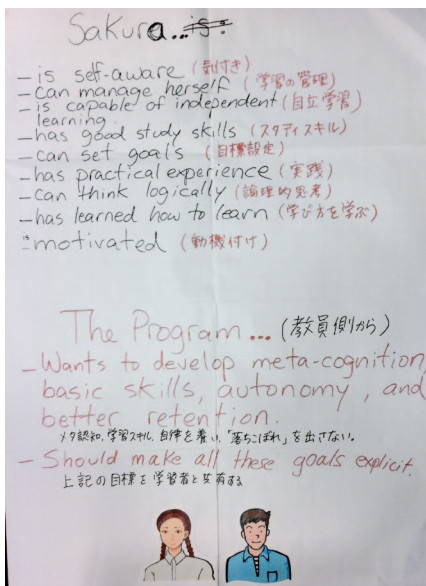 Sakura...is:
- is self-aware (気付き)
- can manage herself (学習の管理)
- is capable of independent (自立学習)
learning.
- has good study skills (スタディスキル)
- can set goals (目標設定)
- has practical experience (実践)
- can think logically (論理的思考)
- has learned how to learn (学び方を学ぶ)
is motivated (動機付け)
The Program... (教員側から)
- Wants to develop meta-cognition,
basic skills, autonomy, and
better retention.
メタ認知、学習スキル、自律を養い、「落ちこぼれ」を出さない。
- Should make all these goals explicit.
上記の目標を学習者と共有する